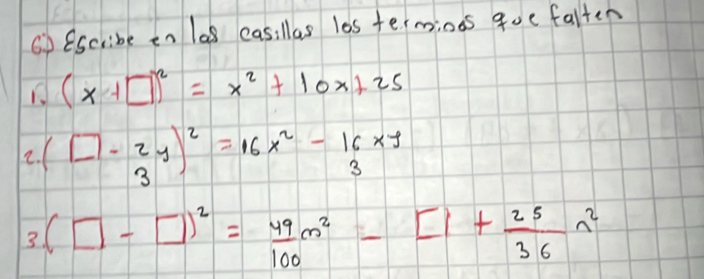 6.) Escribe en las casillas los terminos que falten
1. (x + □)² = x² + 10x + 25
2. (□ - 2y/3)² = 16x² - 16xy/3
3. (□ - □)² = 49/100 m² - □ + 25/36 n²